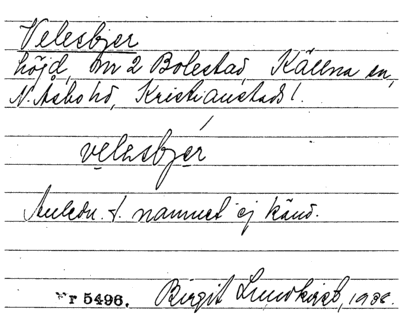 Velesbjer
höjd, nr 2 Bolestad, Källna sn,
N. Åsbo hd, Kristianstads l.
velesbjer
Anledn. t. namnet ej känd.
Nr 5496. Birgit Lundkvist, 1936.